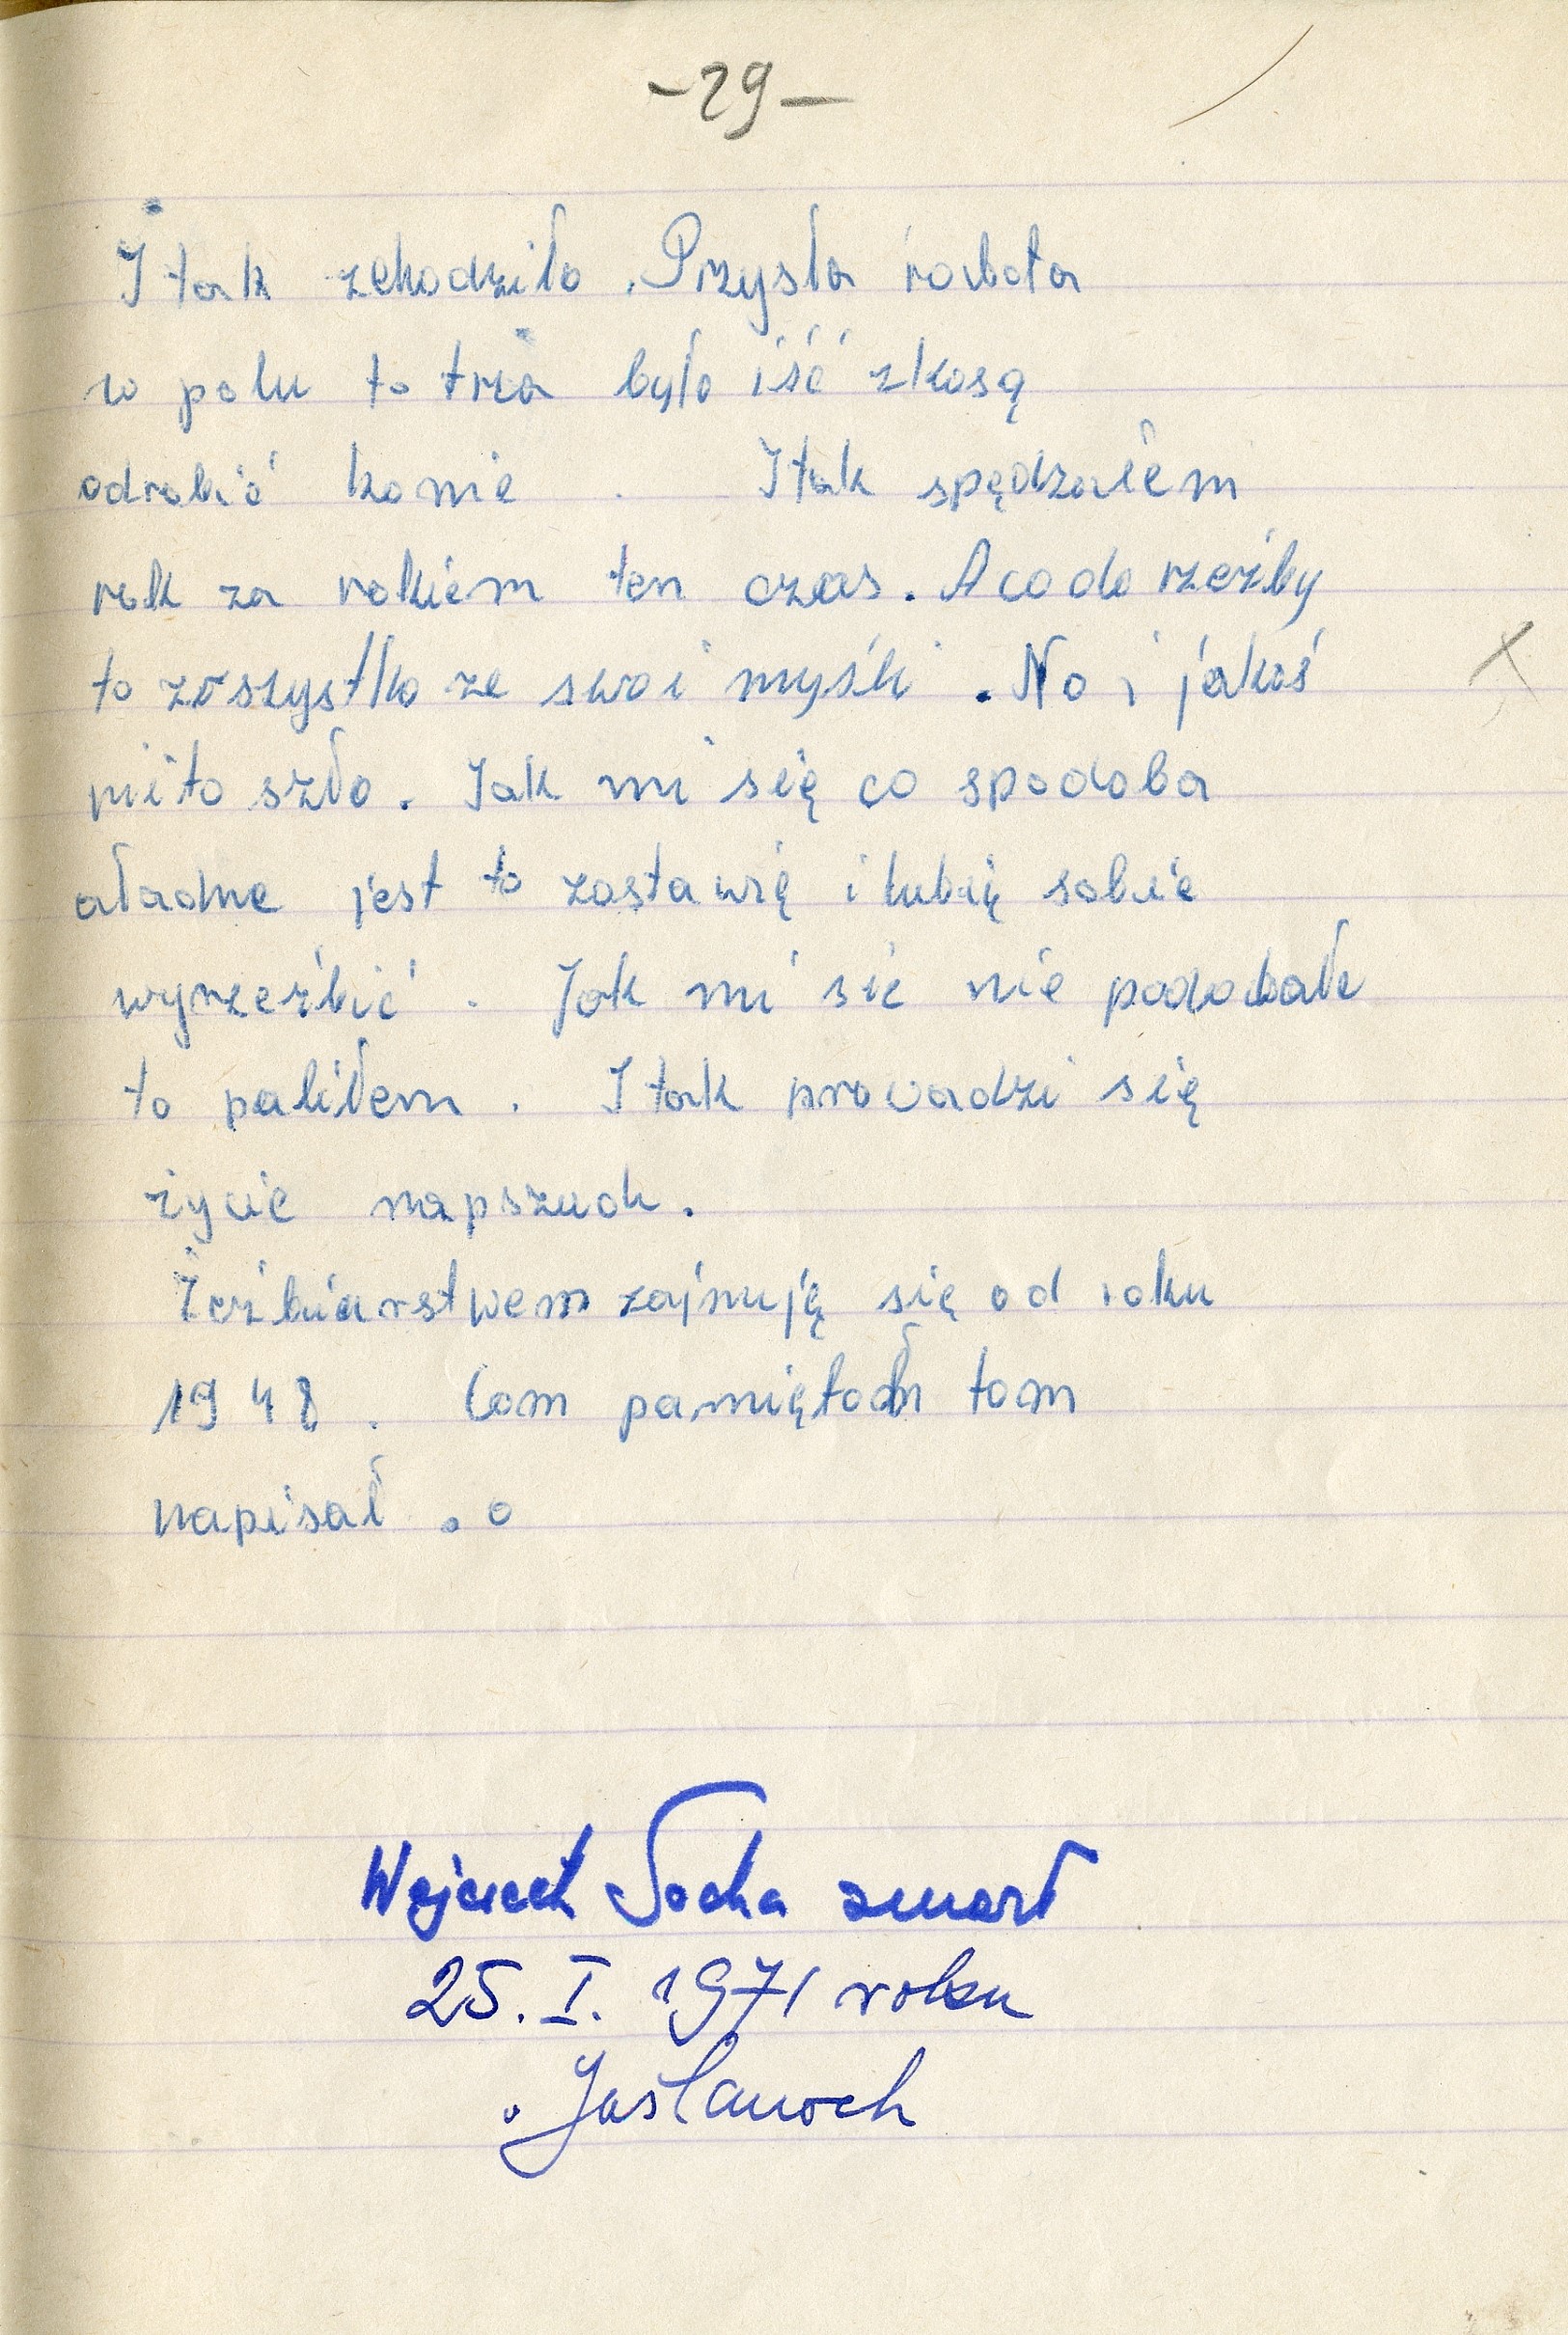 -29-
I tak zchodziło. Przysła robota
w polu to trza było iść zkosą
odrobić konie. Itak spędzałem
rok za rokiem ten czas. A co do rzeźby
to wszystko ze swoi myśli. No i jakoś
mi to szło. Jak mi się co spodoba
aładne jest to zostawię i lubię sobie
wyrzeźbić. Jak mi sie nie podobało
to paliłem. I tak prowadzi się
życie napszud.
Rzeźbiarstwem zajmuję się od roku
1948. Com pamiętoł tom
napisał..
Wojciech Socha zmarł
25. I. 1971 roku
Jaślanoch